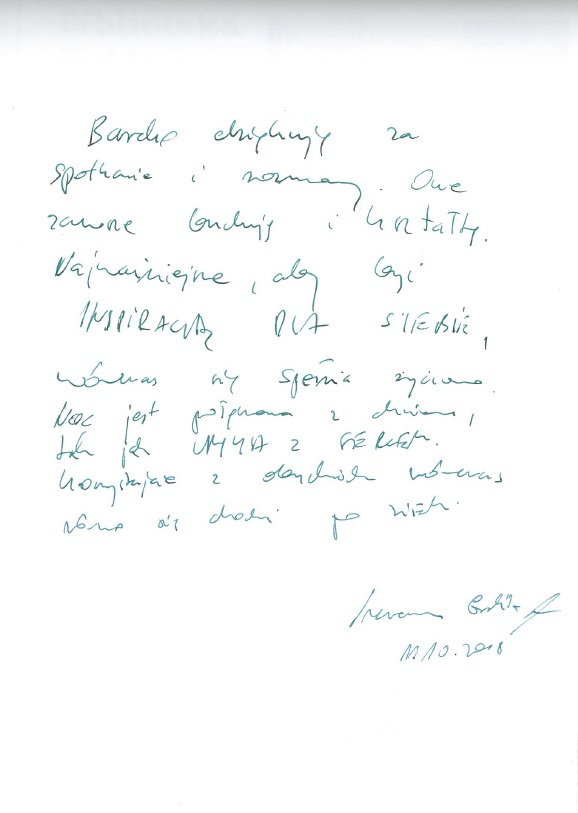 Bardzo dziękuję za
spotkanie i rozmowę. One
zawsze budują i kształtują.
Najważniejsze, aby być
INSPIRACJĄ DLA SIEBIE,
wówczas się spełnia życiowo.
Noc jest połączona z dniem,
tak jak UMYSŁ z SERCEM.
Korzystając z obydwóch wówczas
równo się chodzi po ziemi.
11.10.2018